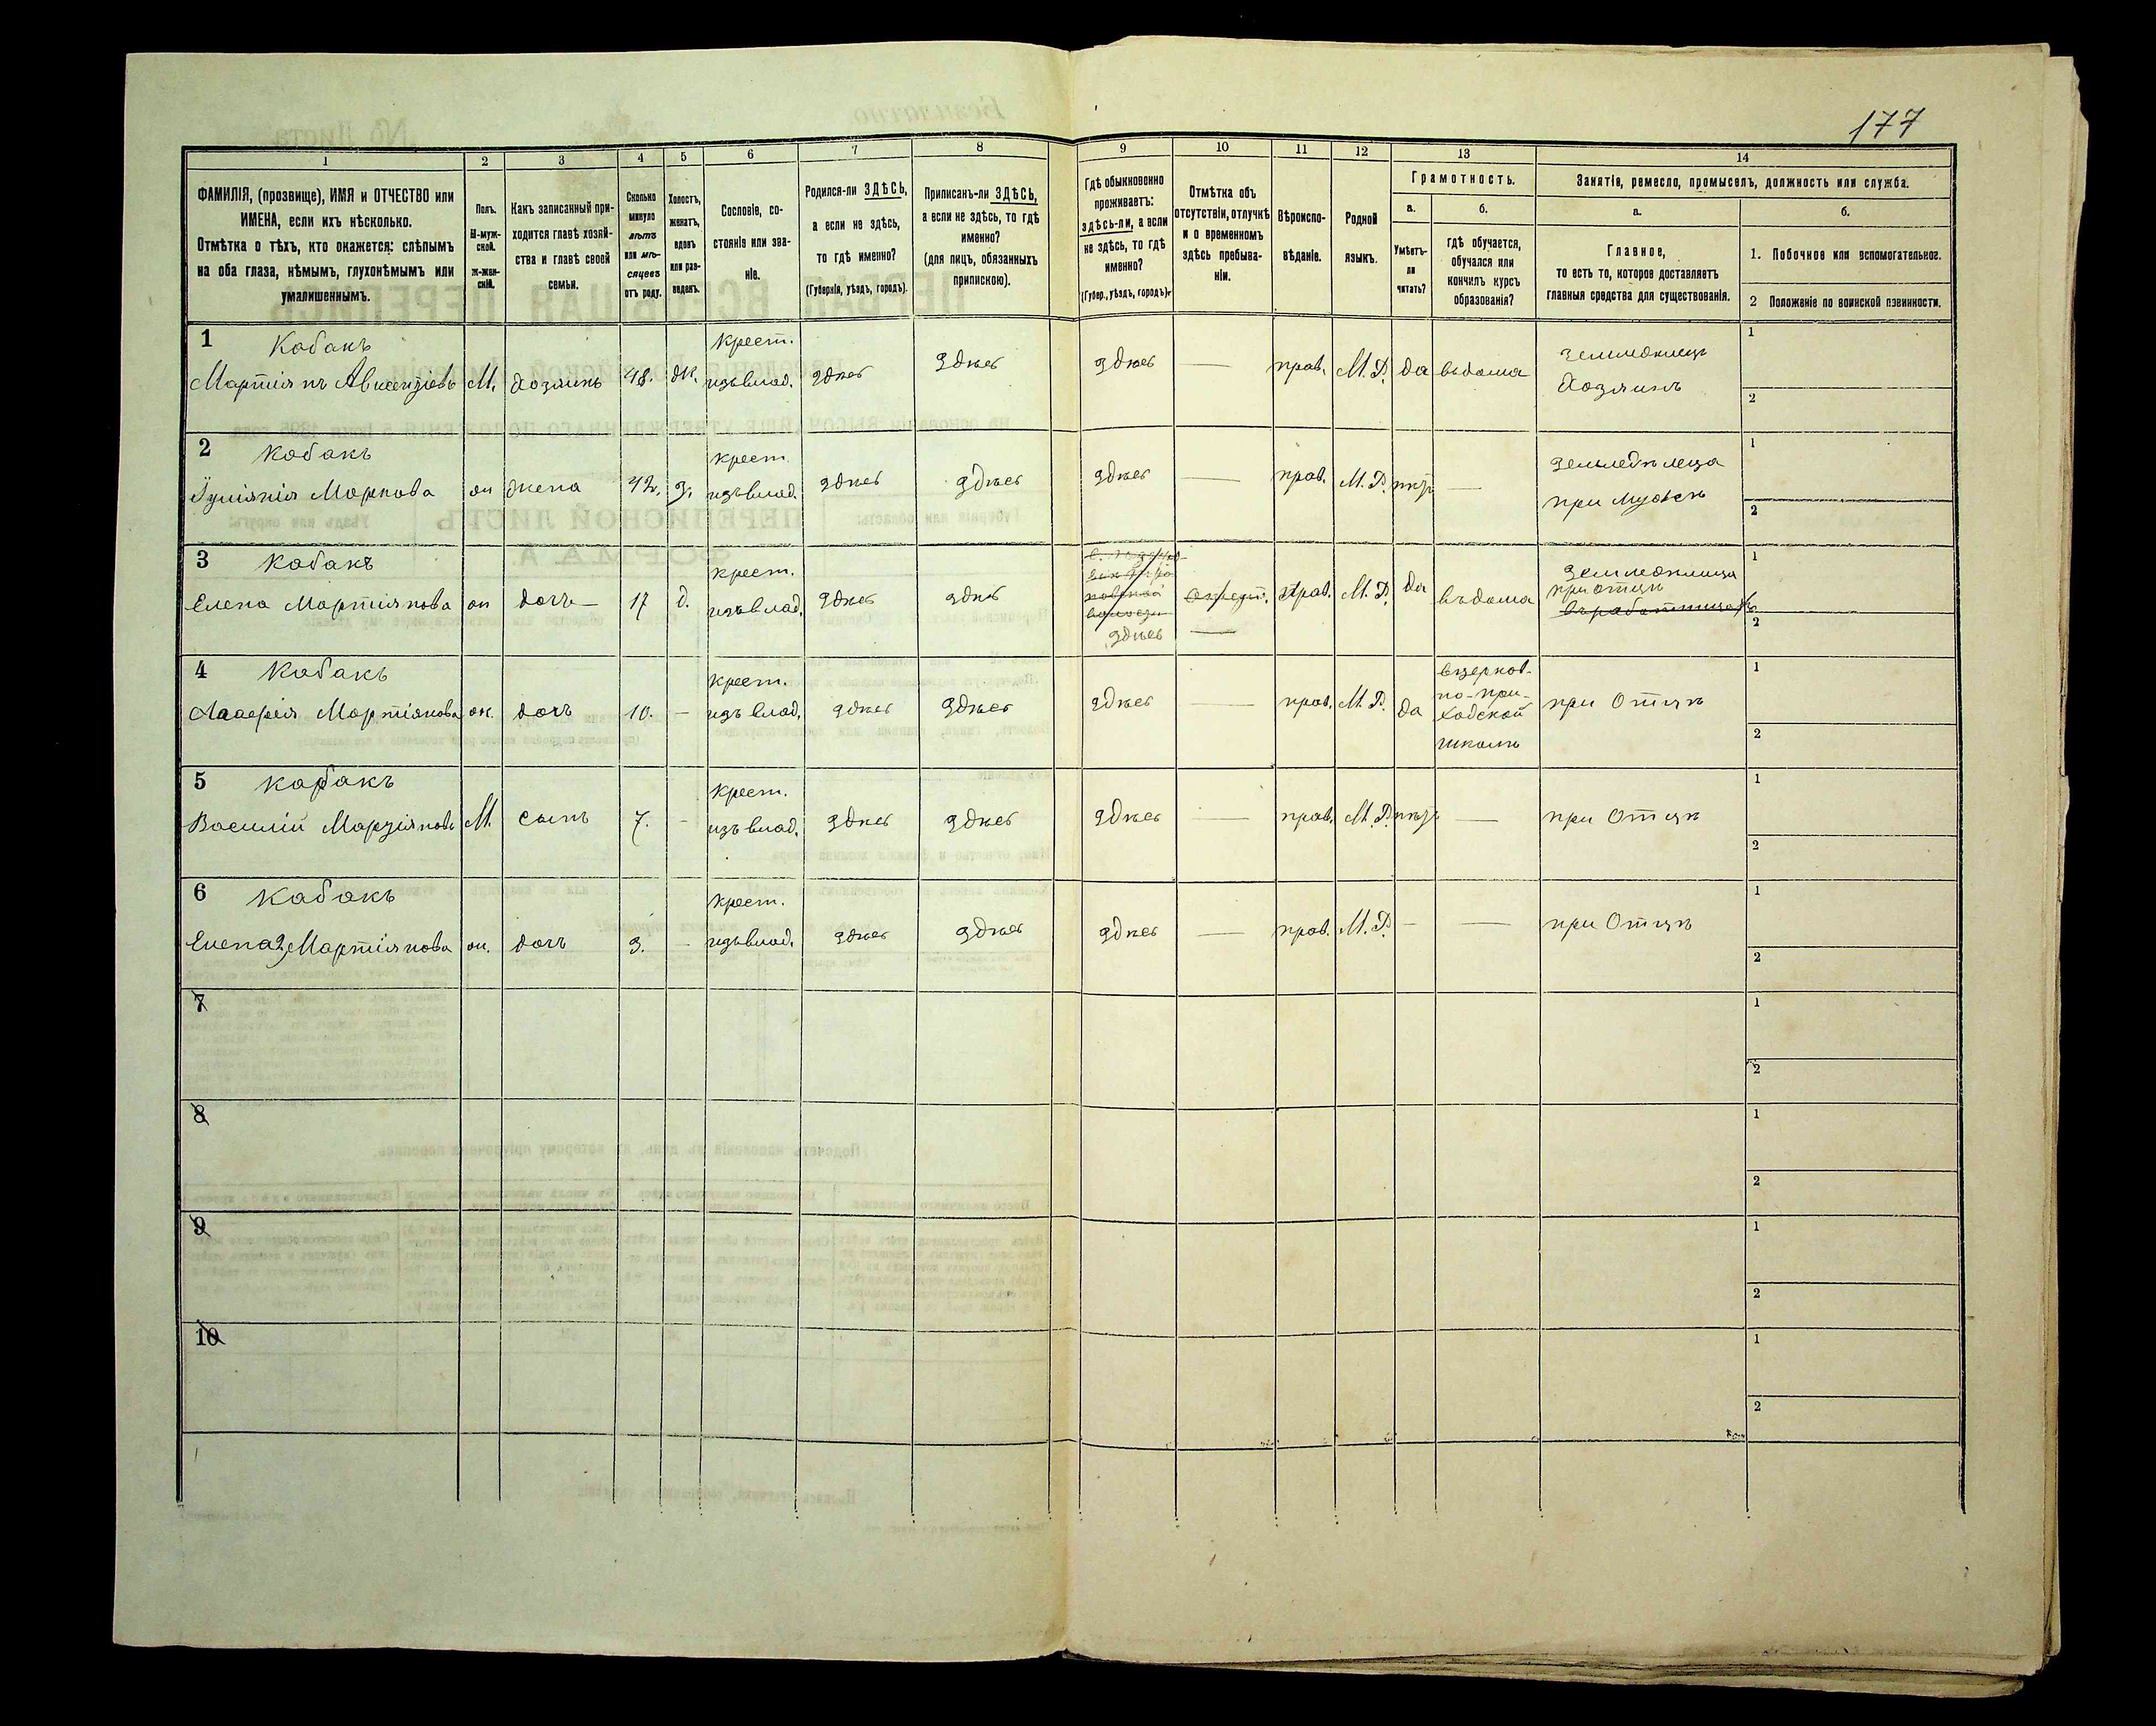 177
1 2 3 4 5 6 7 8 9 10 11 12 13 14
ФАМИЛІЯ, (прозвище), ИМЯ и ОТЧЕСТВО или
ИМЕНА, если ихъ нѣсколько.
Отмѣтка о тѣхъ, кто окажется: слѣпымъ
на оба глаза, нѣмымъ, глухонѣмымъ или
умалишеннымъ.
Полъ.
М-муж-
ской.
Ж-жен-
скій.
Какъ записанный при-
ходится главѣ хозяй-
ства и главѣ своей
семьи.
Сколько
минуло
лѣтъ
или мѣ-
сяцевъ
отъ роду.
Холостъ,
женатъ,
вдовъ
или раз-
веденъ.
Сословіе, со-
стояніе или зва-
ніе.
Родился-ли ЗДѢСЬ,
а если не здѣсь,
то гдѣ именно?
(Губернія, уѣздъ, городъ).
Приписанъ-ли ЗДѢСЬ,
а если не здѣсь, то гдѣ
именно?
(для лицъ, обязанныхъ
припискою).
Гдѣ обыкновенно
проживаетъ:
здѣсь-ли, а если
не здѣсь, то гдѣ
именно?
(Губер., уѣздъ, городъ).
Отмѣтка объ
отсутствіи, отлучкѣ
и о временномъ
здѣсь пребыва-
ніи.
Вѣроиспо-
вѣданіе.
Родной
языкъ.
Грамотность.
а.
Умѣетъ-
ли
читать?
б.
гдѣ обучается,
обучался или
кончилъ курсъ
образованія?
Занятіе, ремесло, промыселъ, должность или служба.
а.
Главное,
то есть то, которое доставляетъ
главныя средства для существованія.
б.
1. Побочное или вспомогательное.
2 Положеніе по воинской повинности.
1 Кабакъ крест. 1
М. хозяинъ 48. ж. изъ влад. здѣсь здѣсь здѣсь — прав. М. Р. да въ дома
хозяинъ
2
2 Кабакъ крест. 1
Маркова ж жена 42. з. изъ влад. здѣсь здѣсь здѣсь — прав. М. Р. нѣтъ —
при мужѣ
2
3 Кабакъ крест. 1
Елена Мартіянова ж дочь 17 д. изъ влад. здѣсь здѣсь прав. М. Р. да въ дома
при отцѣ
здѣсь —
2
4 Кабакъ крест. 1
Мартіянова ж. дочь 10. — изъ влад. здѣсь здѣсь здѣсь — прав. М. Р. да
в церков-
но-при-
ходской
школѣ
при Отцѣ
2
5 Кабакъ крест. 1
Василій Мартіяновъ М. сынъ 7. - изъ влад. здѣсь здѣсь здѣсь — прав. М. Р. нѣтъ — при Отцѣ
2
6 Кабакъ крест. 1
Елена 2 Мартіянова ж. дочь 3. - изъ влад. здѣсь здѣсь здѣсь — прав. М. Р. — — при Отцѣ
2
7 1
2
8 1
2
9 1
2
10 1
2